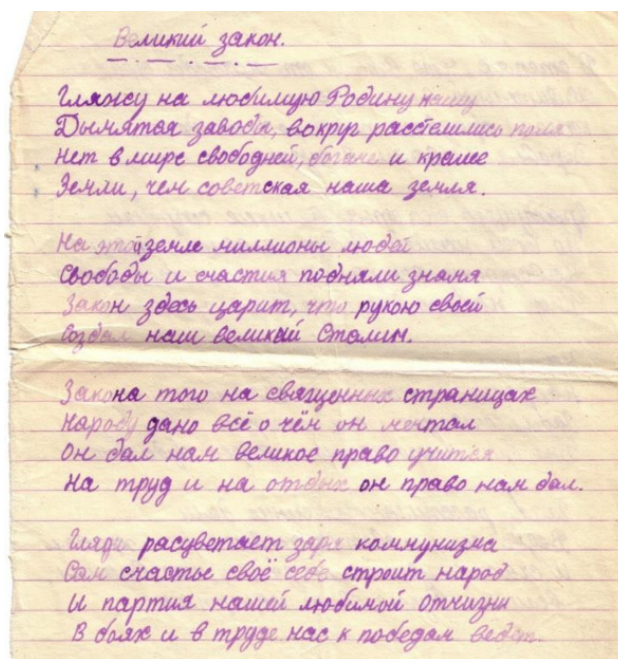 Великий закон.
Гляжу на любимую Родину нашу
Дымятся заводы, вокруг расстелились поля
Нет в мире свободней, богаче и краше
Земли, чем советская наша земля.
На этой земле миллионы людей
Свободы и счастия подняли знамя
Закон здесь царит, что рукою своей
Создал наш великий Сталин.
Закона того на священных страницах
Народу дано всё о чём он мечтал
Он дал нам великое право учится
На труд и на отдых он право нам дал.
Гляди расцветает заря коммунизма
Сам счастье своё себе строит народ
И партия нашей любимой отчизны
В боях и в труде нас к победам ведет.